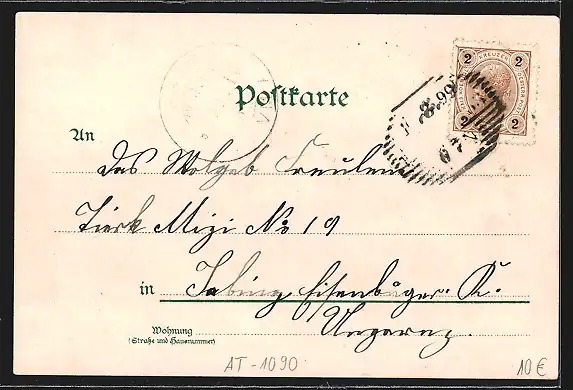 2 KREUZER 2
2 2
99
Postkarte
An
Das Wolgeb Freulein
Türk Mizi No 19
in Tobing Eisenbürger. K.
Ungarn.
Wohnung
(Straße und Hausnummer)
AT-1090
10€